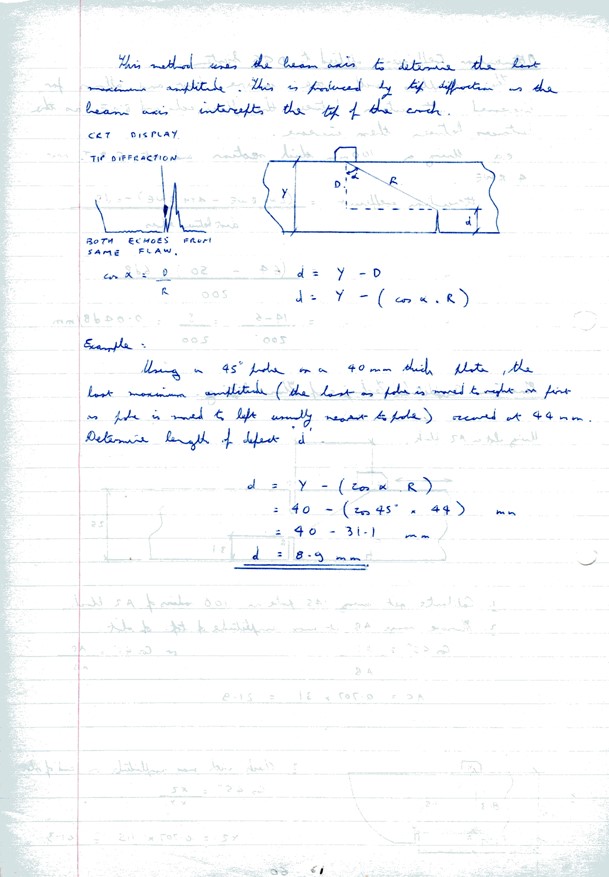 This method uses the beam axis to determine the last
maximum amplitude. This is produced by tip diffraction as the
beam axis intercepts the tip of the crack.
CRT DISPLAY
TIP DIFFRACTION
BOTH ECHOES FROM
SAME FLAW.
Y D α R d
cos α = D / R
d = Y - D
d = Y - ( cos α . R )
Example :
Using a 45° probe on a 40 mm thick plate, the
last maximum amplitude ( the last as probe is moved to right or first
as probe is moved to left usually nearest to probe ) occured at 44 mm.
Determine length of defect 'd'.
d = Y - ( cos α . R )
= 40 - ( cos 45° × 44 ) mm
= 40 - 31.1 mm
d = 8.9 mm